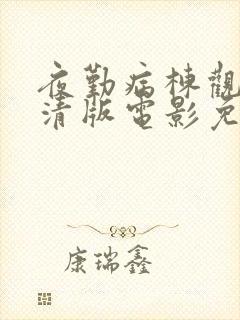 夜勤病棟觀
清版電影免
康瑞鑫